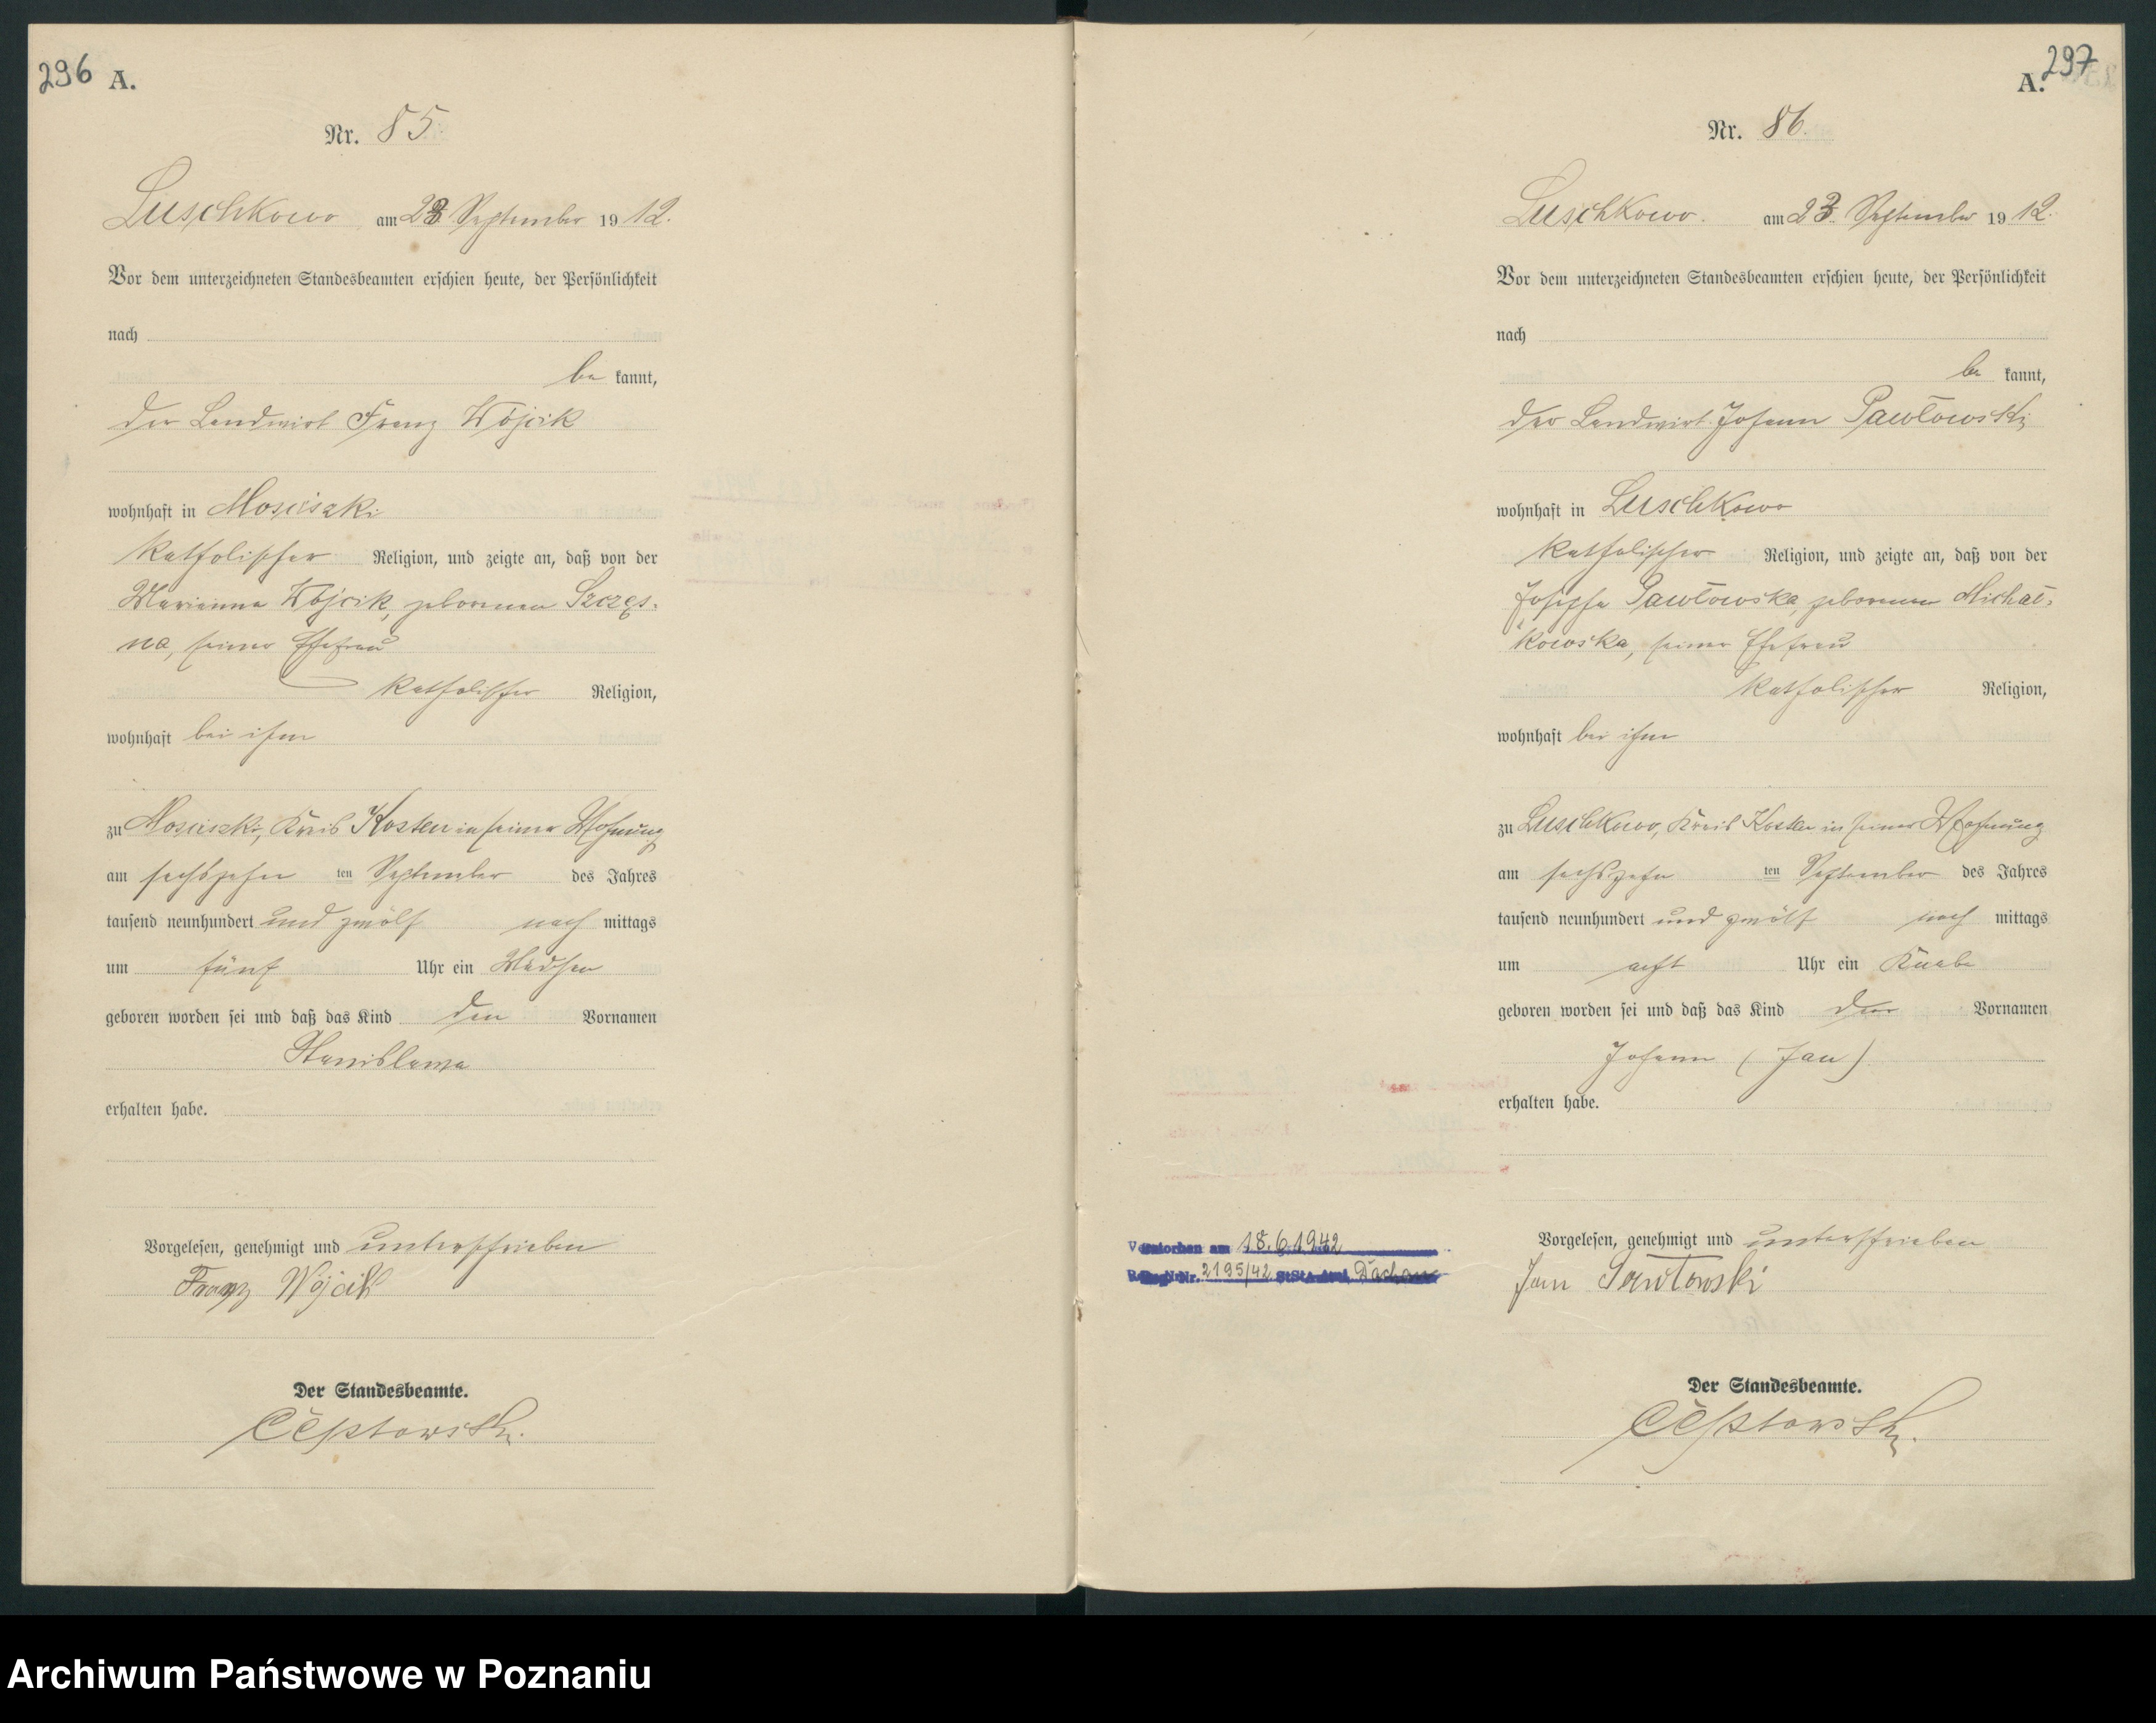 296 A.
Nr. 85
Luschkowo am 23 September 1912.
Vor dem unterzeichneten Standesbeamten erschien heute, der Persönlichkeit
nach
be kannt,
der Landwirt Franz Wójcik
wohnhaft in Mosciszki
katholischer Religion, und zeigte an, daß von der
Marianna Wójcik, geborenen Szczęs-
na, seiner Ehefrau
katholischer Religion,
wohnhaft bei ihm
zu Mosciszki, Kreis Kosten in seiner Wohnung
am sechszehn ten September des Jahres
tausend neunhundert und zwölf nach mittags
um fünf Uhr ein Mädchen
geboren worden sei und daß das Kind den Vornamen
Stanislawa
erhalten habe.
Vorgelesen, genehmigt und unterschrieben
Franz Wójcik
Der Standesbeamte.
297
A.
Nr. 86.
Luschkowo. am 23. September 1912.
Vor dem unterzeichneten Standesbeamten erschien heute, der Persönlichkeit
nach
be kannt,
der Landwirt Johann Pawłowski
wohnhaft in Luschkowo
katholischer Religion, und zeigte an, daß von der
Josepha Pawłowska, geborenen Michał-
kowska, seiner Ehefrau
katholischer Religion,
wohnhaft bei ihm
zu Luschkowo, Kreis Kosten in seiner Wohnung
am sechszehn ten September des Jahres
tausend neunhundert und zwölf nach mittags
um acht Uhr ein Knabe
geboren worden sei und daß das Kind den Vornamen
Johann (Jan)
erhalten habe.
Vorgelesen, genehmigt und unterschrieben
Jan Pawłowski
Der Standesbeamte.
Verstorben am 18.6.1942
Reg. Nr. 2195/42 St. Amt Dachau
Archiwum Państwowe w Poznaniu